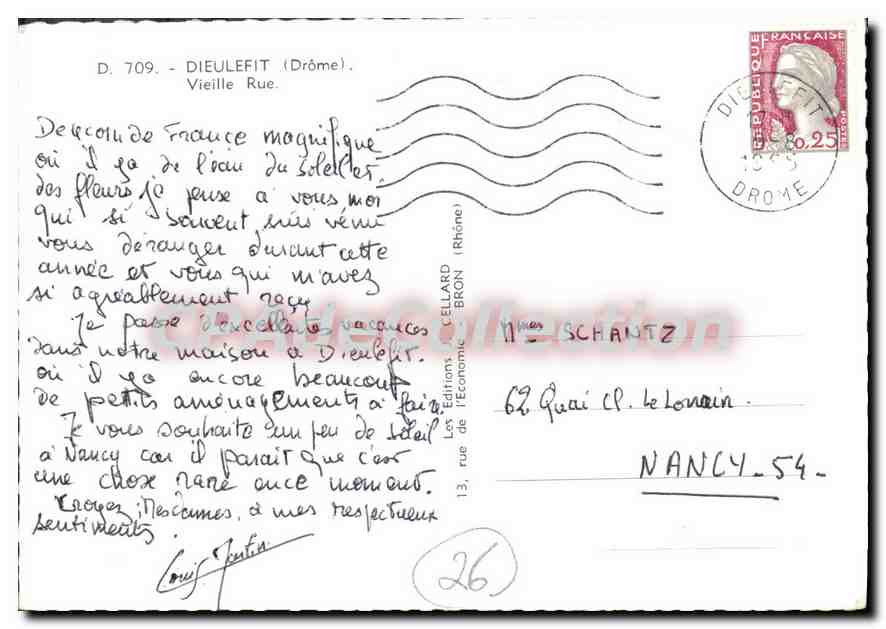 D. 709. - DIEULEFIT (Drôme).
Vieille Rue.
De ce coin de France magnifique
où il y a de l'eau du soleil et
des fleurs je pense à vous moi
qui si souvent suis venu
vous déranger durant cette
année et vous qui m'avez
si agréablement reçu
Je passe d'excellentes vacances
dans notre maison à Dieulefit.
où il y a encore beaucoup
de petits aménagements à faire.
Je vous souhaite un peu de soleil
à Nancy car il parait que c'est
une chose rare en ce moment.
Croyez, Mesdames, à mes respectueux
sentiments.
Louis Martin
26
Les Editions J. CELLARD
13, rue de l'Economie BRON (Rhône)
REPUBLIQUE FRANÇAISE
0,25
POSTES
DIEULEFIT
DROME
Mmes SCHANTZ
62 Quai Cl. Le Lorrain.
NANCY - 54 -
CPADeCollection